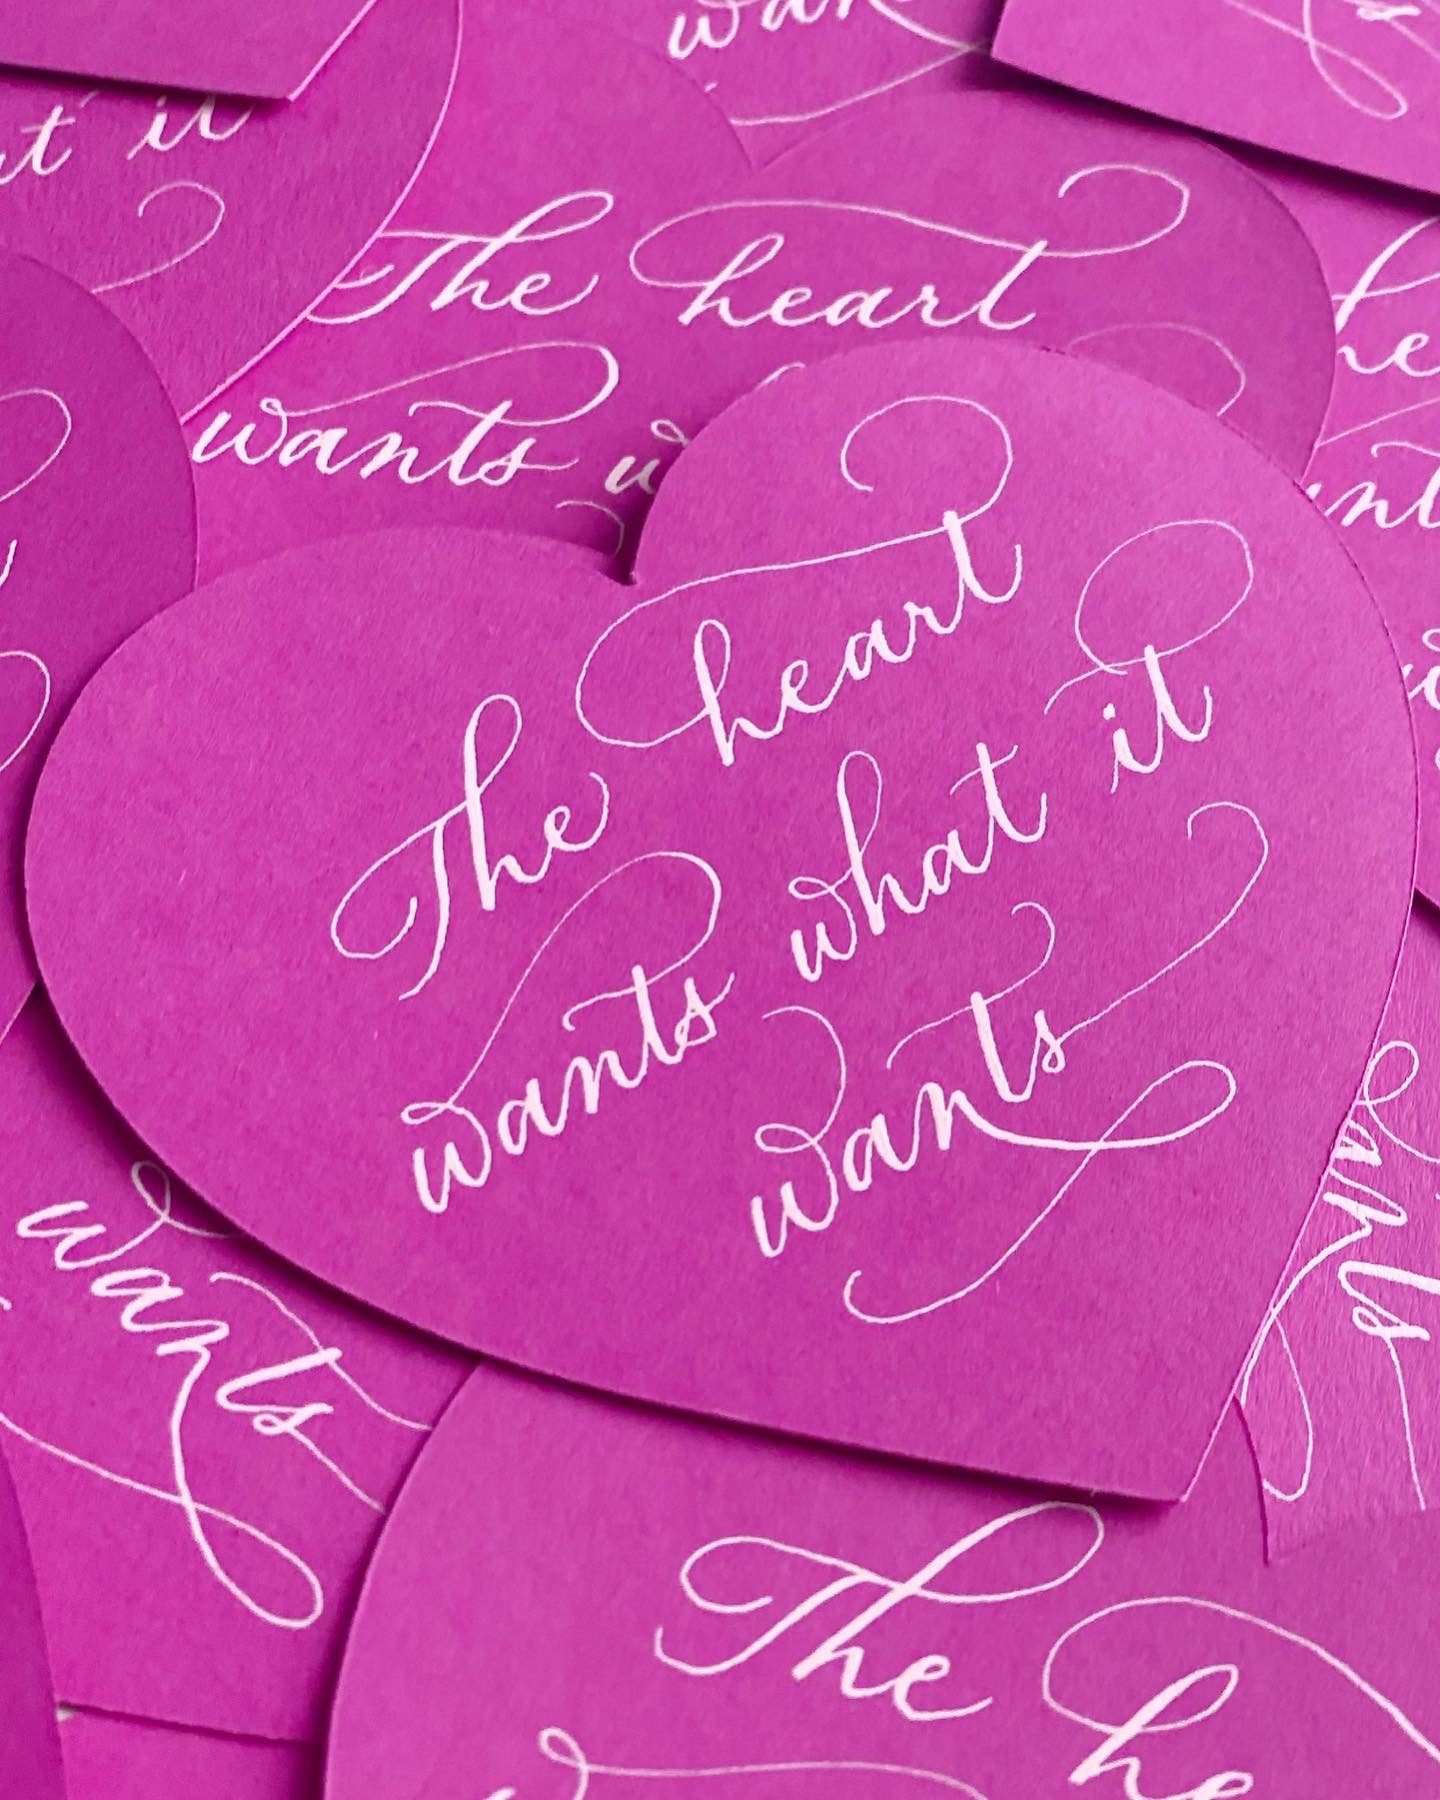 wants
it
The heart
wants
The heart
wants what it
wants
wants
wants
The